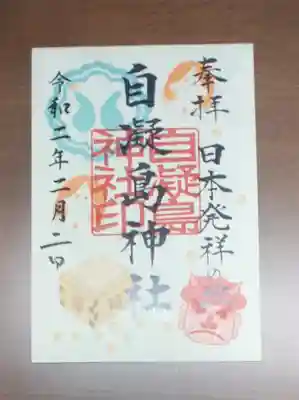 奉拝
日本発祥の
自凝島神社
自凝島神社印
令和二年二月二日